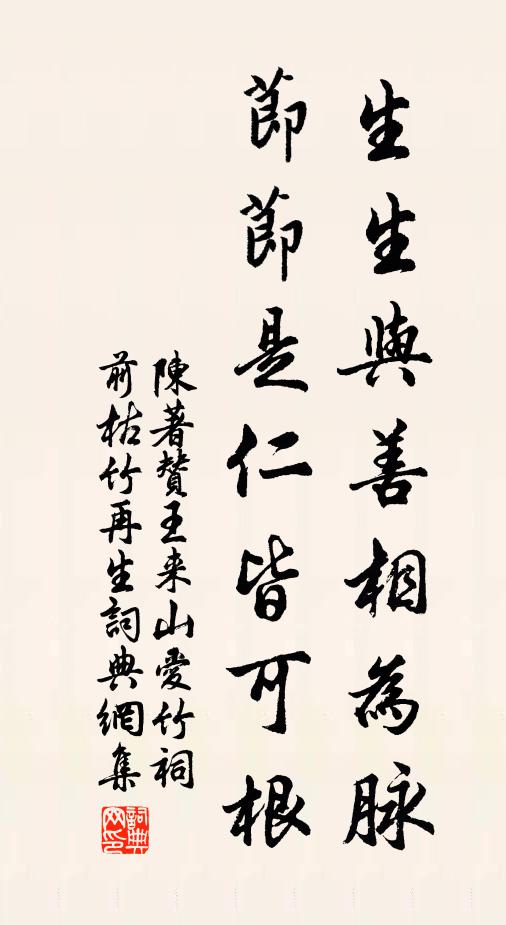 生生與善相為脉
節節是仁皆可根
陳著贊王来山愛竹祠
前枯竹再生詞典網集
詞典網印